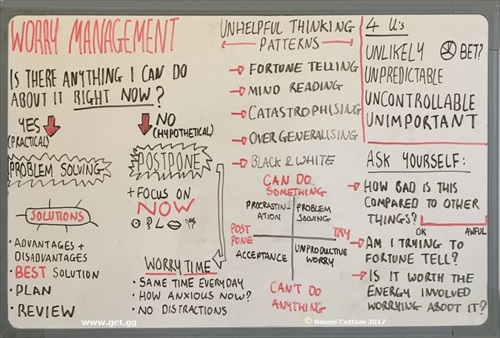 WORRY MANAGEMENT
IS THERE ANYTHING I CAN DO
ABOUT IT RIGHT NOW?
YES
(PRACTICAL)
NO
(HYPOTHETICAL)
PROBLEM SOLVING
SOLUTIONS
• ADVANTAGES +
DISADVANTAGES
• BEST SOLUTION
• PLAN
• REVIEW
POSTPONE
+ FOCUS ON
NOW
WORRY TIME
• SAME TIME EVERYDAY
• HOW ANXIOUS NOW?
• NO DISTRACTIONS
UNHELPFUL THINKING
PATTERNS
FORTUNE TELLING
MIND READING
CATASTROPHISING
OVERGENERALISING
BLACK & WHITE
CAN DO
SOMETHING
PROCRASTIN-
ATION
PROBLEM
SOLVING
POST
PONE
TRY
ACCEPTANCE
UNPRODUCTIVE
WORRY
CAN'T DO
ANYTHING
4 U's
UNLIKELY
BET?
UNPREDICTABLE
UNCONTROLLABLE
UNIMPORTANT
ASK YOURSELF:
HOW BAD IS THIS
COMPARED TO OTHER
THINGS?
OK
AWFUL
AM I TRYING TO
FORTUNE TELL?
IS IT WORTH THE
ENERGY INVOLVED
WORRYING ABOUT IT?
www.get.gg
© Naomi Cottam 2017